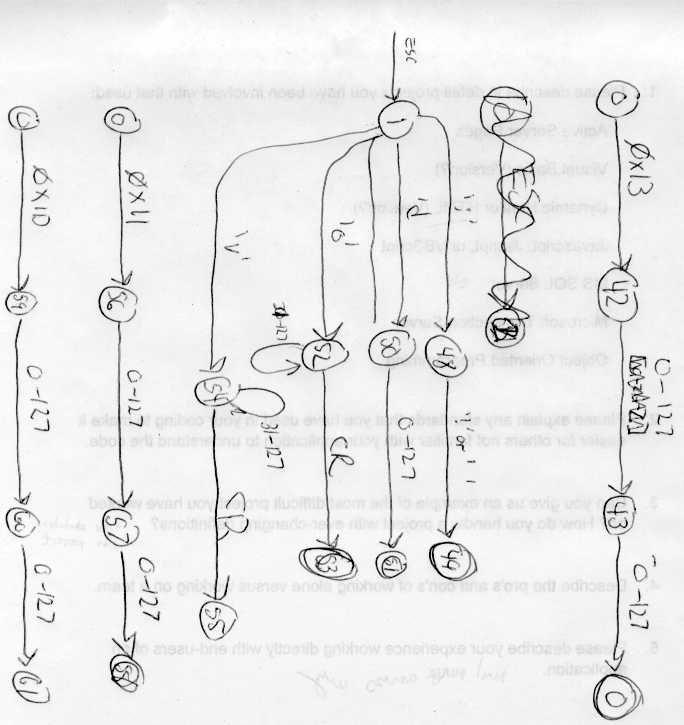 0 Øx13 42 0-127 43 0-127 0
ESC 1
48 49
'd' 50 0-127 51
'b' 52 CR 53
'V' 54 31-127 55
0 Øx11 56 0-127 57 0-127 58
0 Øx10 59 0-127 60 0-127 61
1. Please describe in detail projects you have been involved with that used:
Active Server Pages
Visual
Dynamic
Javascript, Jscript, or VBScript
MS SQL
Microsoft
Object Oriented
2. Please explain any standards that you have used in your coding to make it
easier for others not familiar with your application to understand the code.
3. Can you give us an example of the most difficult project you have worked
How do you handle a project with ever-changing definitions?
4. Describe the pro's and con's of working alone versus working on a team.
5. Please describe your experience working directly with end-users of an
application.